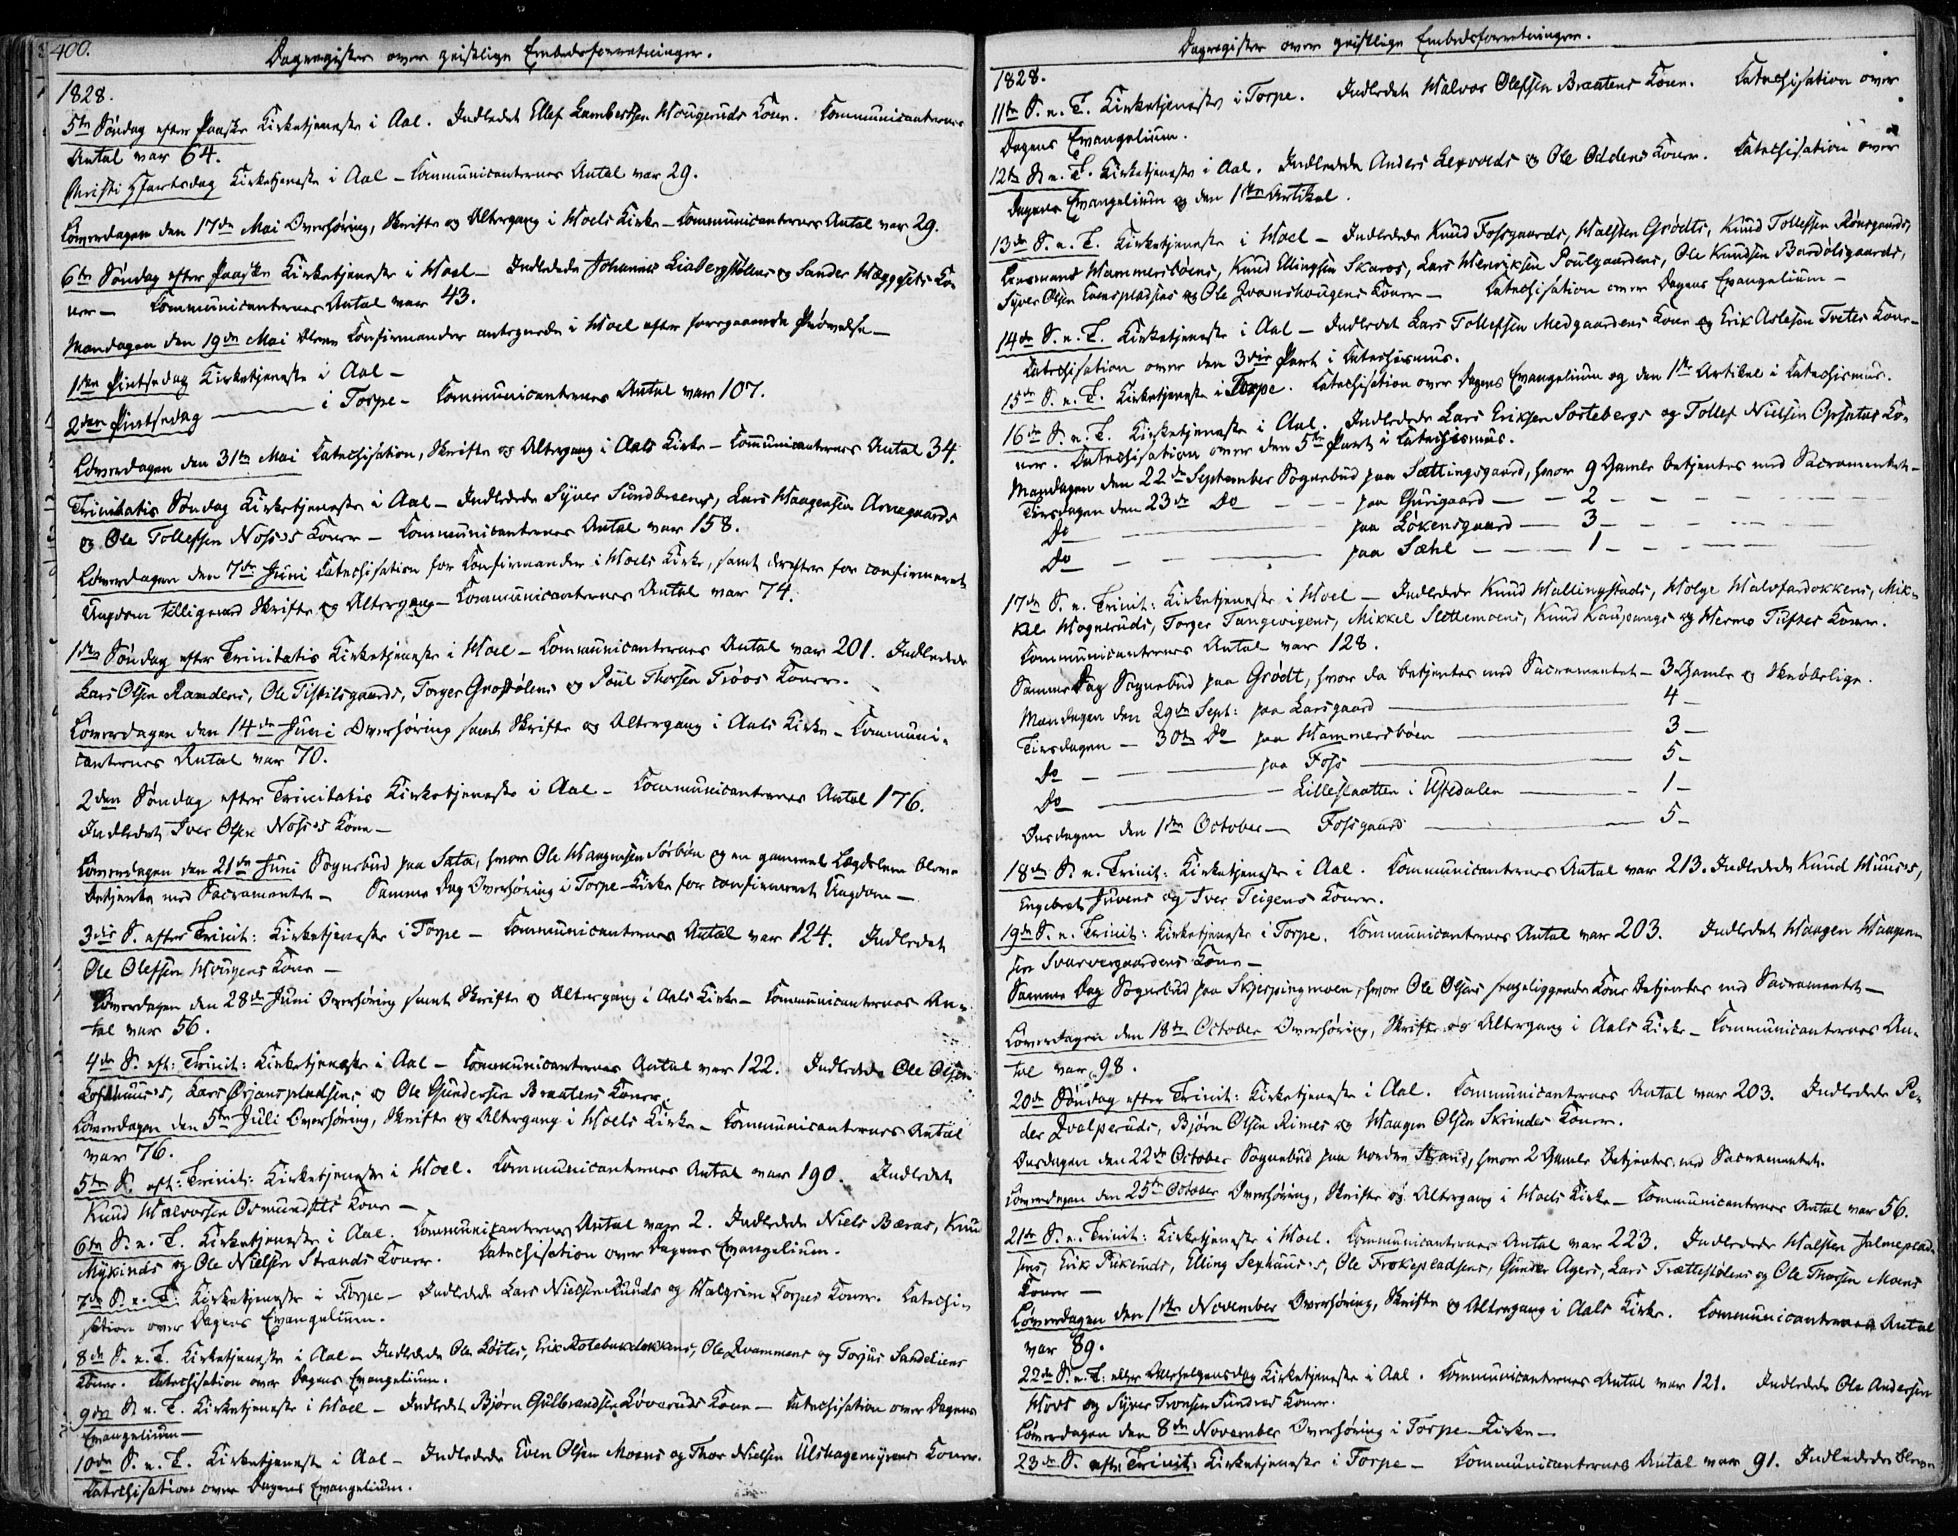 400.
Dagregister over geistlige Embedsforretninger.
1828.
5te Søndag efter Paaske Kirketjeneste i Aal. Indledet Ellef Lambertsen Hougeruds Kone. Communicanternes
Antal var 64.
Christi Himmelfartsdag Kirketjeneste i Aal – Communicanternes Antal var 29.
Løverdagen den 17de Mai Overhøring, Skrifte og Altergang i Hoels Kirke – Communicanternes Antal var 29.
6te Søndag efter Paaske Kirketjeneste i Hoel – Indledede Johannes Liabergstølens og Sander Ko-
ner – Communicanternes Antal var 43.
Mandagen den 19de Mai bleve Confirmander antegnede i Hoel efter foregaaende Prøvelse –
1ste Pintsedag Kirketjeneste i Aal –
2den Pintsedag ——— i Torpe – Communicanternes Antal var 107.
Løverdagen den 31te Mai Catechisation, Skrifte og Altergang i Aals Kirke – Communicanternes Antal 34.
Trinitatis Søndag Kirketjeneste i Aal – Indledede Syver Sundbreens, Lars Haagensen Arnegaards
og Ole Tollefsen Noss's Koner – Communicanternes Antal var 158.
Løverdagen den 7de Juni Catechisation for Confirmander i Hoels Kirke, samt derefter for confirmeret
Ungdom tilligemed Skrifte og Altergang – Communicanternes Antal var 74.
1ste Søndag efter Trinitatis Kirketjeneste i Hoel – Communicanternes Antal var 201. Indledede
Lars Olsen Ramdens, Ole Tistilsgaards, Torger Grostølens og Poul Thorsen Trøos Koner.
Løverdagen den 14de Juni Overhøring samt Skrifte og Altergang i Aals Kirke – Communi-
canternes Antal var 70.
2den Søndag efter Trinitatis Kirketjeneste i Aal – Communicanternes Antal 176.
Indledet Iver Olsen Noss's Kone –
Løverdagen den 21de Juni Sognebud paa Sata, hvor Ole Haagensen Sørbøen og en gammel Lægdslem bleve
betjente med Sacramentet – Samme Dag Overhøring i Torpe Kirke for confirmeret Ungdom –
3die S. efter Trinit: Kirketjeneste i Torpe – Communicanternes Antal var 124. Indledet
Ole Olefsen Hougens Kone –
Løverdagen den 28de Juni Overhøring samt Skrifte og Altergang i Aals Kirke – Communicanternes An-
tal var 56.
4de S. eft: Trinit: Kirketjeneste i Aal – Communicanternes Antal var 122. Indledede Ole Olsen
Lofthuus's, Lars Ørjanspladsens og Ole Gundersen Braatens Koner.
Løverdagen den 5te Juli Overhøring, Skrifte og Altergang i Hoels Kirke – Communicanternes Antal
var 76.
5te S. eft: Trinit: Kirketjeneste i Hoel. Communicanternes Antal var 190. Indledet
Knud Halvorsen Osmundsets Kone –
6te S. e. T. Kirketjeneste i Aal. Communicanternes Antal var 2. Indledede Niels Bæras, Knud
Mykinds og Ole Nielsen Strands Koner. Catechisation over Dagens Evangelium.
7de S. e. T. Kirketjeneste i Torpe – Indledede Lars Nielsen Ruuds og Halgrim Torpes Koner. Catechi-
sation over Dagens Evangelium.
8de S. e. T. Kirketjeneste i Aal – Indledede Ole Løites, Erik , Ole Qvammens og Torjus Sandeliens
Koner. Catechisation over Dagens Evangelium.
9de S. e. T. Kirketjeneste i Hoel – Indledet Bjørn Gulbrandsen Løveruds Kone – Catechisation over Dagens
Evangelium –
10de S. e. T. Kirketjeneste i Aal – Indledede Even Olsen Moens og Thor Nielsen Ulshagemyrens Koner.
Catechisation over Dagens Evangelium.
Dagregister over geistlige Embedsforretninger.
1828.
11te S. e. T. Kirketjeneste i Torpe. Indledet Halvor Olefsen Braatens Kone. Catechisation over
Dagens Evangelium.
12te S. e. T. Kirketjeneste i Aal. Indledede Anders Lexvolds og Ole Oddens Koner. Catechisation over
Dagens Evangelium og den 1ste Artikel.
13de S. e. T. Kirketjeneste i Hoel – Indledede Knud Fossgaards, Halsten Grødts, Knud Tollefsen Rønsgaards,
Lensmand Hammersbøens, Knud Ellingsen Skaros, Lars Henriksen Poulgaardens, Ole Knudsen Bardølsgaards,
Syver Olsen Evenspladsens og Ole Qvamshougens Koner – Catechisation over Dagens Evangelium –
14de S. e. T. Kirketjeneste i Aal – Indledet Lars Tollefsen Medgaardens Kone og Erik Aslesen Tvetes Kone –
Catechisation over den 3die Part i Catechismus.
15de S. e. T. Kirketjeneste i Torpe. Catechisation over Dagens Evangelium og den 1ste Artikel i Catechismus.
16de S. e. T. Kirketjeneste i Aal. Indledede Lars Eriksen Sortebergs og Tollef Nielsen Opsatas Ko-
ner. Catechisation over den 5te Part i Catechismus.
Mandagen den 22de September Sognebud paa Sættingsgaard, hvor 9 Gamle betjentes med Sacramentet –
Tirsdagen den 23de Do – – paa Gurigaard – – 2 – – –
Do – ——— paa Løkensgaard – 3 – – –
Do – – ——— paa Sæhl – – 1 – – –
17de S. e. Trinit: Kirketjeneste i Hoel – Indledede Knud Hallingstads, Holge Halvfardokkens, Mik-
kel Hogneruds, Torger Tangevigens, Mikkel Slettemoens, Knud Kaupangs og Hermo Tuftes Koner.
Communicanternes Antal var 128.
Samme Dag Sognebud paa Grødt, hvor da betjentes med Sacramentet – 3 Gamle og Skrøbelige.
Mandagen den 29de Sept: paa Larsgaard ——— 4 –
Tirsdagen – 30te Do paa Hammersbøen ——— 3 –
Do – ——— paa Foss ——— 5 –
Do ——— – Lilleslaatten i Ustedalen ——— 1 –
Onsdagen den 1ste October – Fossgaard ——— 5 –
18de S. e. Trinit: Kirketjeneste i Aal. Communicanternes Antal var 213. Indledede Knud Huus's,
Engebret Juvens og Iver Teigens Koner.
19de S. e. Trinit: Kirketjeneste i Torpe. Communicanternes Antal var 203. Indledet Haagen Haagen-
sen Svarvergaardens Kone –
Samme Dag Sognebud paa Skjerpingmoen, hvor Ole Olsens sengeliggende Kone betjentes med Sacramentet –
Løverdagen den 18de October Overhøring, Skrifte og Altergang i Aals Kirke – Communicanternes An-
tal var 98.
20de Søndag efter Trinit: Kirketjeneste i Aal. Communicanternes Antal var 203. Indledede Pe-
der Qvalperuds, Bjørn Olsen Rimes og Haagen Olsen Skrindes Koner.
Onsdagen den 22de October Sognebud paa nordre Strand, hvor 2 Gamle betjentes med Sacramentet.
Løverdagen den 25de October Overhøring, Skrifte og Altergang i Hoels Kirke – Communicanternes Antal var 56.
21de S. e. Trinit: Kirketjeneste i Hoel. Communicanternes Antal var 223. Indledede Halsten Jelmeplad-
sens, Erik Fekeruds, Elling Sexhuus's, Ole Frokepladsens, Gunder Agers, Lars Trættestølens og Ole Thorsen Moens
Koner –
Løverdagen den 1ste November Overhøring, Skrifte og Altergang i Aals Kirke. Communicanternes Antal
var 89.
22de S. e. T. eller Allehelgensdag Kirketjeneste i Aal. Communicanternes Antal var 121. Indledede Ole Andersen
Hovs og Syver Tronsen Sundres Koner.
Løverdagen den 8de November Overhøring i Torpe Kirke –
23de S. efter Trinit: Kirketjeneste i Torpe – Communicanternes Antal var 91. Indledede bleve